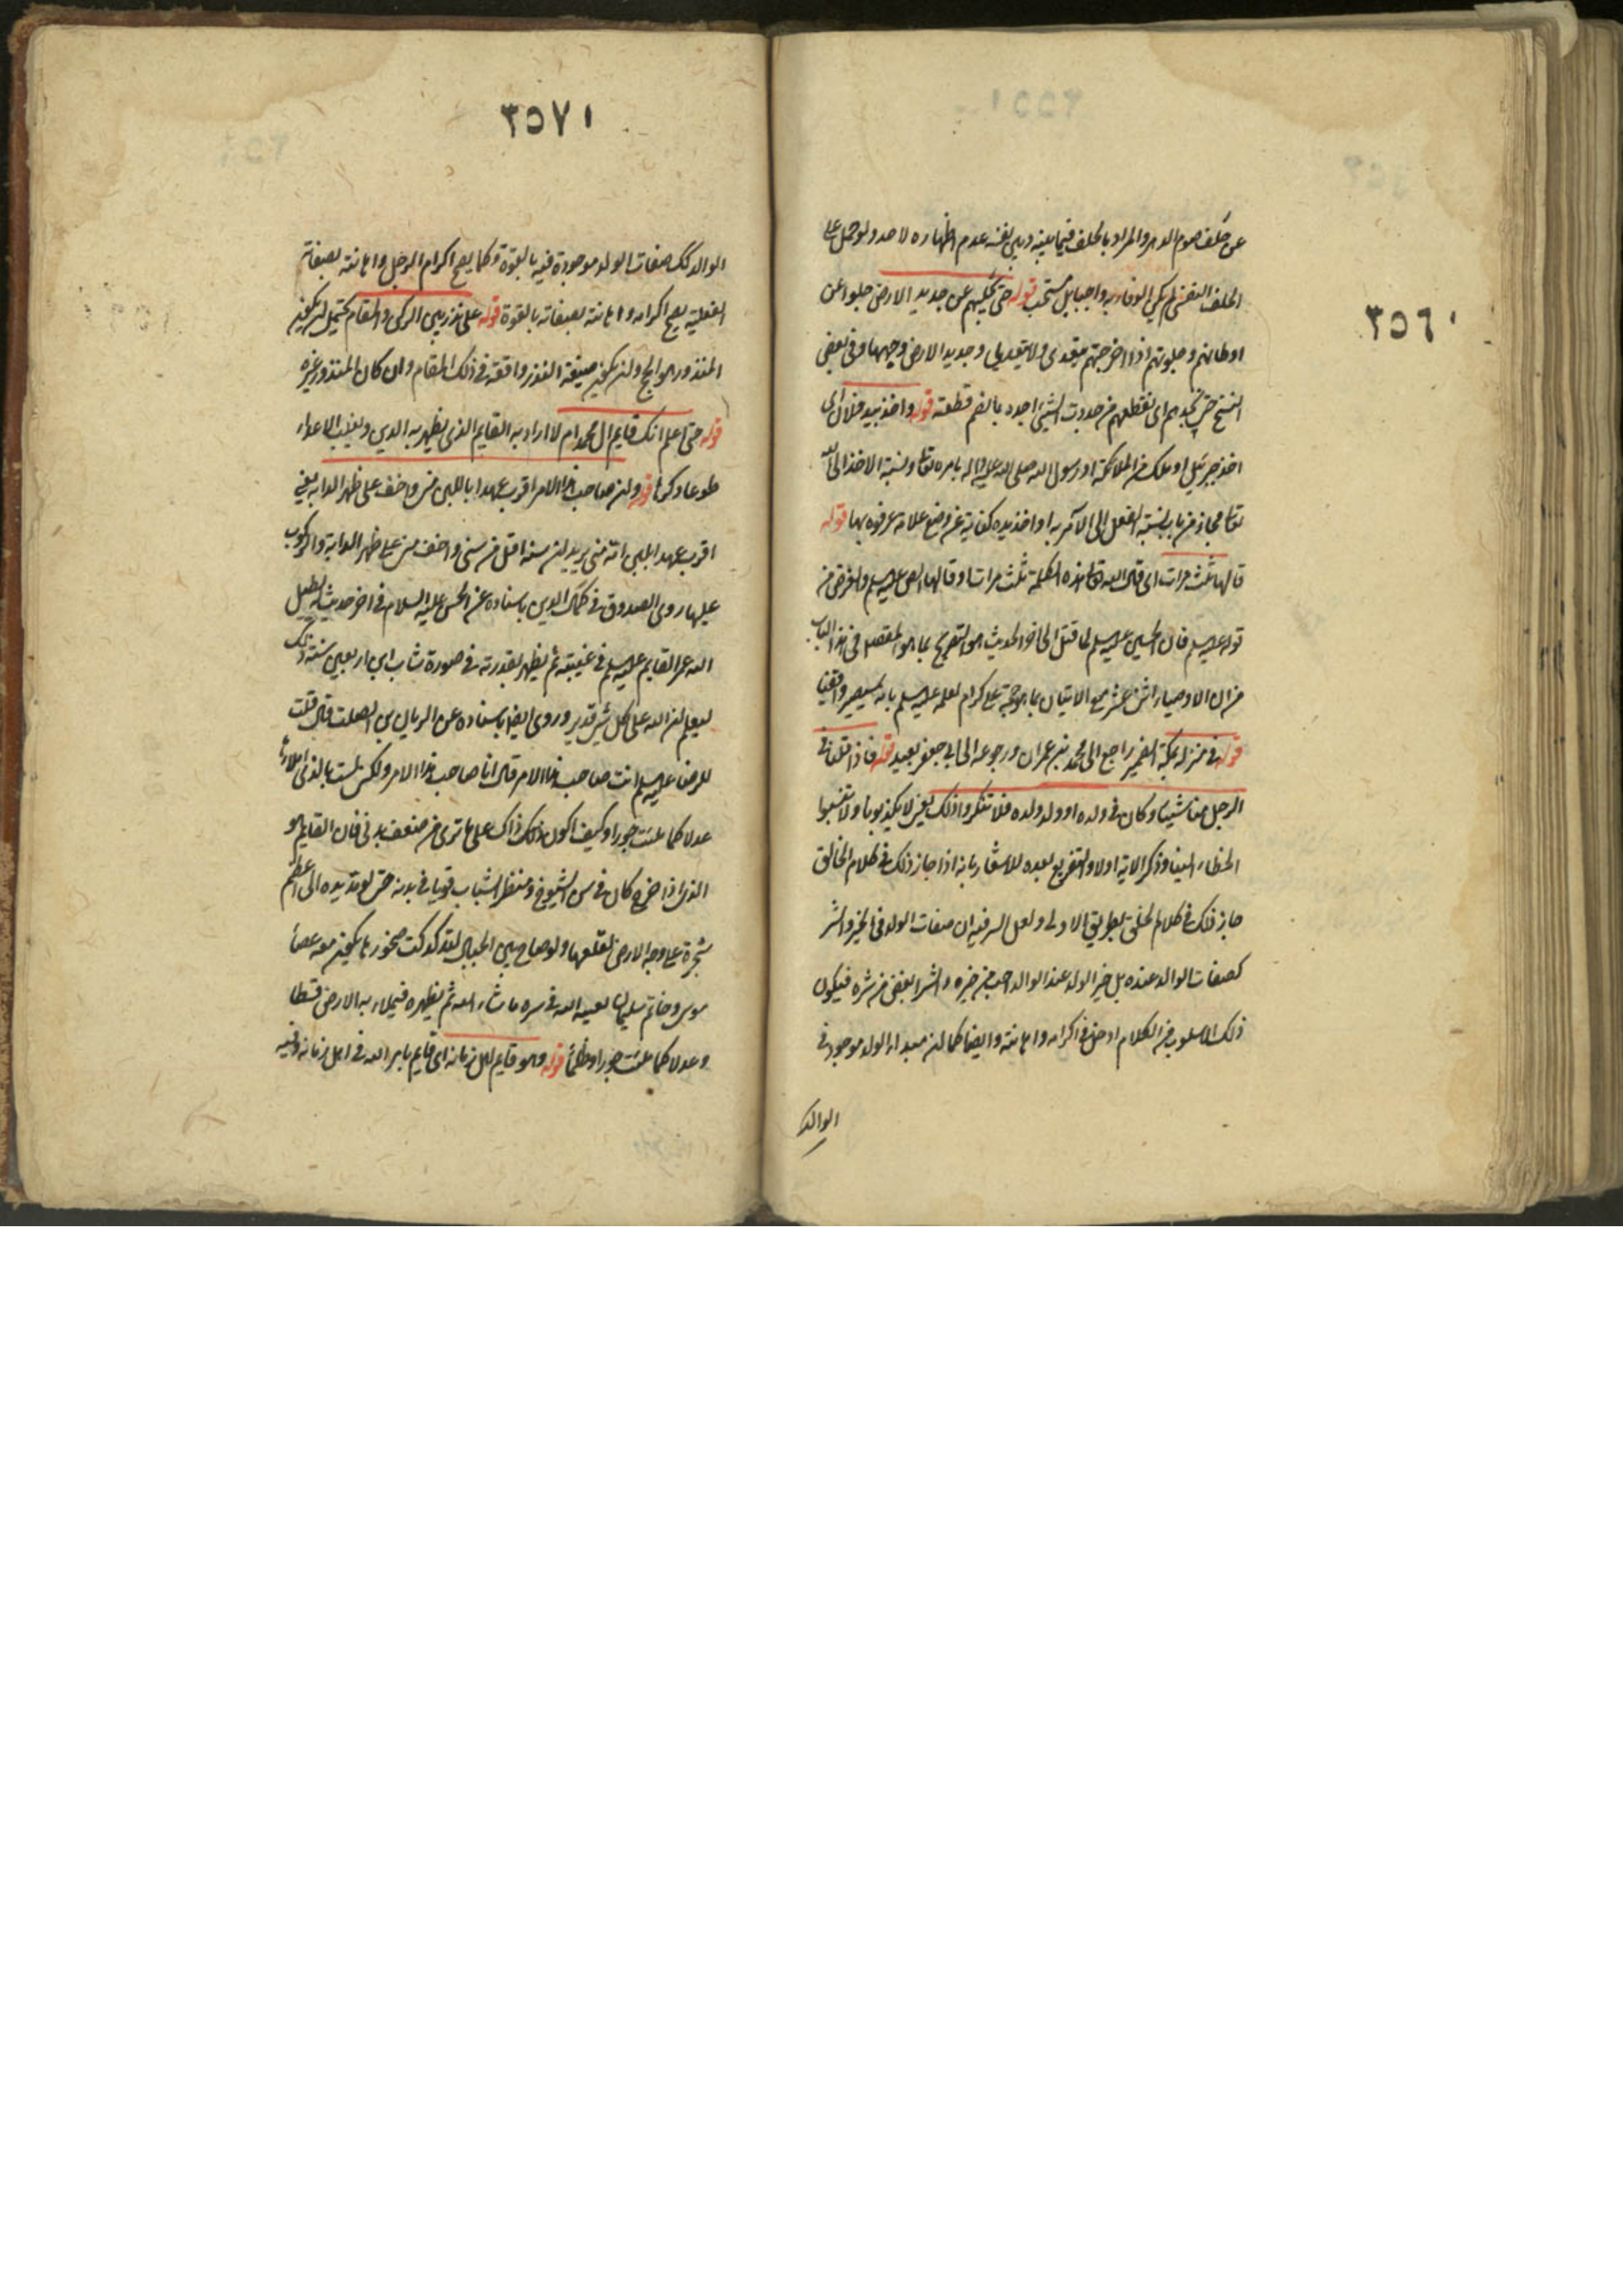 ٣٥٦١
عن حلف صوم الدهر والمراد بالحلف فيما بينه وبين نفسه عدم اظهاره لاحد ولو حمل على
الحلف النفسي لم يكن الوفاء به واجبا بل مستحب قوله حتى نجليهم عن جديد الارض جلوا عن
اوطانهم وجلوتهم اذا اخرجتهم يتعدى ولا يتعدى وجديد الارض وجهها وفي بعض
النسخ حتى نجدهم اى نقطعهم من جددت الشيء اجده بالضم قطعته قوله واخذ بيد فلان اى
اخذ جبرئيل او ملك من الملائكة او رسول الله صلى الله عليه واله بامره تعالى ونسبة الاخذ الى الله
تعالى مجاز من باب نسبة الفعل الى الآمر به او اخذ يده كناية عن وضع علامة عرفوه بها قوله
قالها ثلث مرات اى قال الله تعالى هذه الكلمة ثلث مرات او قالها النبي عليه السلم والغرض من
قوله عليه السلم فان الحسين عليه السلم لما قتل الى اخر الحديث هو التصريح بما هو المقصد في هذا الباب
من ان الاوصياء اثنى عشر مع الاتيان بما هو حجة على كرام لعلمه عليه السلم بانه سيصير واقفيا
قوله في منزله بمكة الضمير راجع الى محمد بن عمران ورجوعه الى ابي جعفر بعيد قوله فاذا قلنا في
الرجل منا شيئا وكان في ولده او ولد ولده فلا تنكروا ذلك يعنى لا تكذبونا ولا تنسبوا
الخطاء الينا وذكر الاية اولا والتفريع بعده للاشعار بانه اذا جاز ذلك في كلام الخالق
جاز ذلك في كلام الخلق بطريق الاولى ولعل السر فيه ان صفات الولد في الخير والشر
كصفات الوالد عنده بل خير الولد عند الوالد احب من خيره والشر ابغض من شره فيكون
ذلك الاسلوب من الكلام ادخل في اكرامه واهانته وايضا كما ان مبدا الولد موجود في
الوالد
٣٥٧١
الوالد كك صفات الولد موجودة فيه بالقوة وكما يصح اكرام الرجل واهانته بصفاته
الفعلية يصح اكرامه واهانته بصفاته بالقوة قوله على نذر بين الركن والمقام يحتمل ان يكون
المنذور هو الحج وان يكون صيغة النذر واقعة في ذلك المقام وان كان المنذور غيره
قوله حتى اعلم انك قايم ال محمد ام لا اراد به القايم الذى يظهر به الدين ويغلب الاعداء
طوعا وكرها قوله وان صاحب هذا الامر اقرب عهدا باللبن منى واخف على ظهر الدابة يعنى
اقرب عهد اللبن انه منى يريد ان سنه اقل من سنى واخف منى على ظهر الدابة والركوب
عليها روى الصدوق في كمال الدين باسناده عن الحسن عليه السلام في اخر حديث له يطيل
الله عمر القايم عليه السلم في غيبته ثم يظهر بقدرته في صورة شاب ابن اربعين سنة ذلك
ليعلم ان الله على كل شئ قدير وروى ايضا باسناده عن الريان بن الصلت قال قلت
للرضا عليه السلم انت صاحب هذا الامر قال انا صاحب هذا الامر ولكن لست بالذى املاءها
عدلا كما ملئت جورا وكيف اكون ذلك ذاك على ما ترى من ضعف بدنى فان القايم هو
الذى اذا خرج كان في سن الشيوخ ومنظر الشباب قويا في بدنه حتى لو مد يده الى اعظم
شجرة على وجه الارض لقلعها ولو صاح بين الجبال لتدكدكت صخورها يكون معه عصا
موسى وخاتم سليمان يغيبه الله في ستره ما شاء الله ثم يظهره فيملاء به الارض قسطا
وعدلا كما ملئت جورا وظلما قوله وهو قايم اهل زمانه اى قايم بامر الله في اهل زمانه وفيه